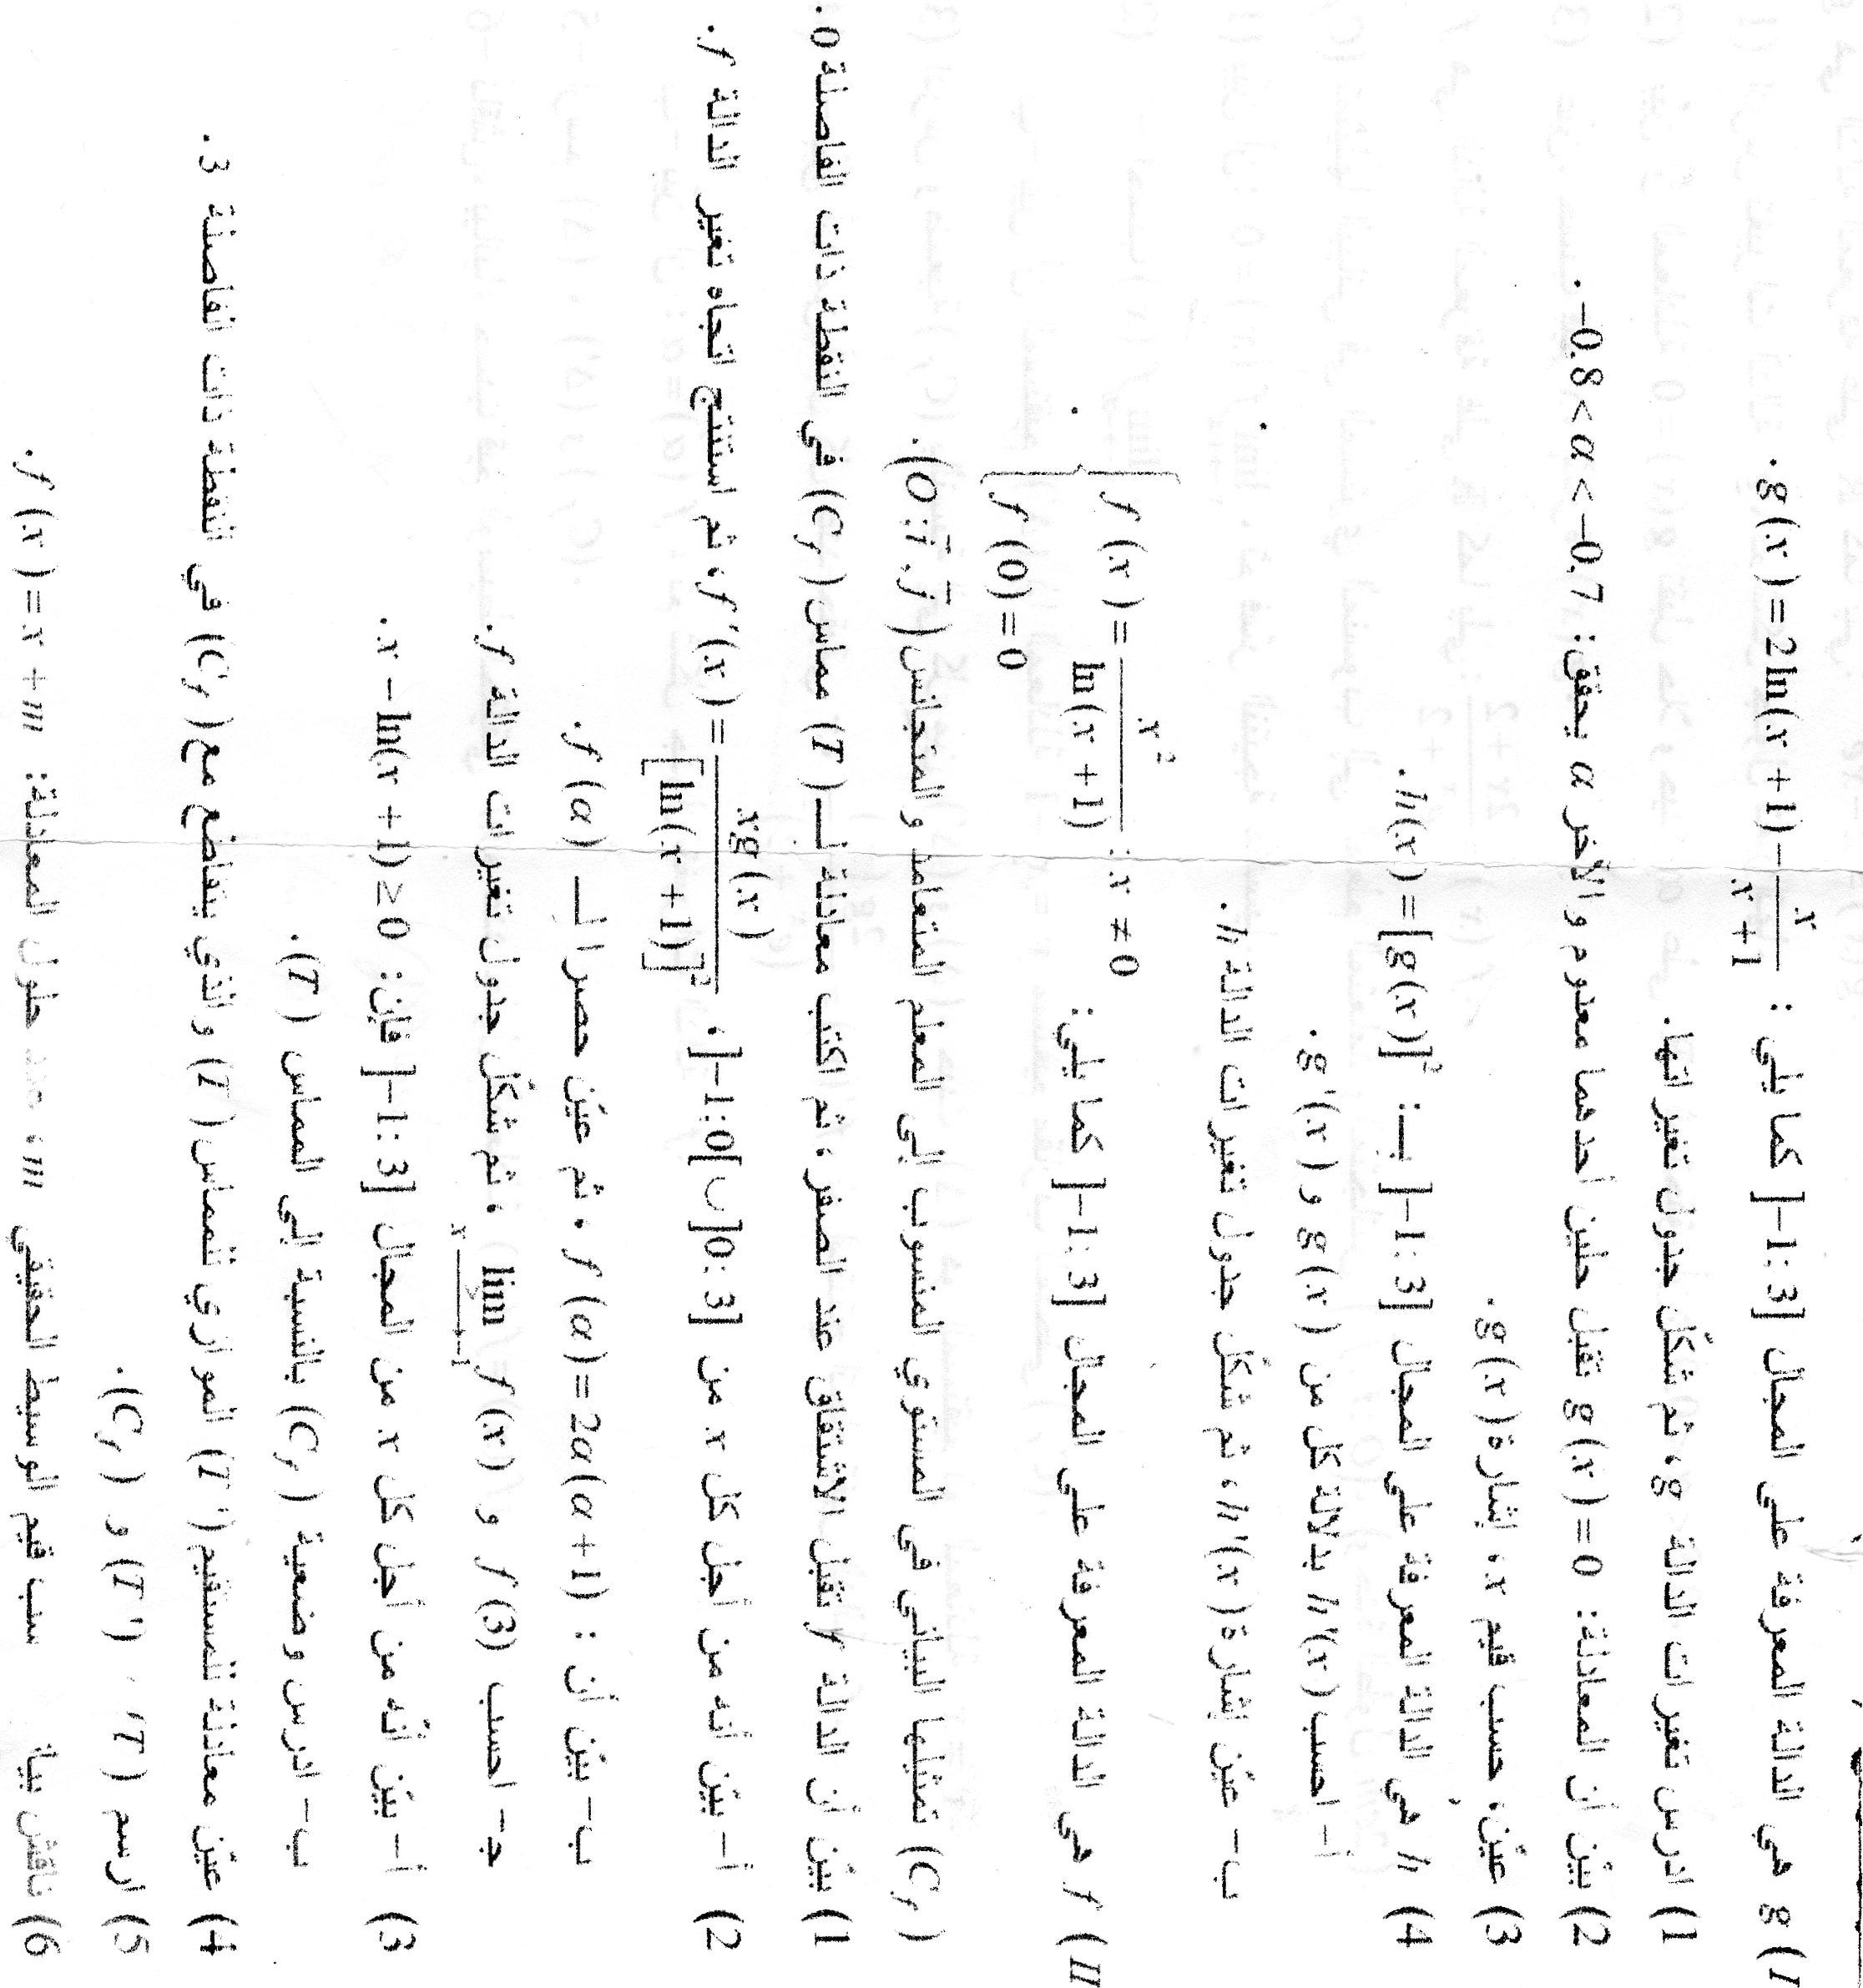 I) g هي الدالة المعرفة على المجال ]-1; 3] كما يلي : g(x) = 2ln(x+1) - \frac{x}{x+1} .
1) ادرس تغيرات الدالة g ، ثم شكّل جدول تغيراتها.
2) بيّن أن المعادلة: g(x) = 0 تقبل حلين أحدهما معدوم والآخر α يحقق: -0.8 < α < -0.7 .
3) عيّن، حسب قيم x ، إشارة g(x) .
4) h هي الدالة المعرفة على المجال ]-1; 3] بـ: h(x) = [g(x)]² .
أ- احسب h'(x) بدلالة كل من g(x) و g'(x) .
ب- عيّن إشارة h'(x) ، ثم شكّل جدول تغيرات الدالة h .
II) f هي الدالة المعرفة على المجال ]-1; 3] كما يلي: \begin{cases} f(x) = \frac{x^2}{\ln(x+1)} ; x ≠ 0 \\ f(0) = 0 \end{cases} .
(C_f) تمثيلها البياني في المستوي المنسوب إلى المعلم المتعامد والمتجانس (O; \vec{i}, \vec{j}) .
1) بيّن أن الدالة f تقبل الاشتقاق عند الصفر، ثم اكتب معادلة لـ (T) مماس (C_f) في النقطة ذات الفاصلة 0 .
2) أ- بيّن أنه من أجل كل x من ]-1; 0[ ∪ ]0; 3] ، f'(x) = \frac{xg(x)}{[\ln(x+1)]^2} ، ثم استنتج اتجاه تغير الدالة f .
ب- بيّن أن : f(α) = 2α(α+1) ، ثم عيّن حصرا لـ f(α) .
جـ- احسب f(3) و \lim_{x \xrightarrow{>} -1} f(x) ، ثم شكّل جدول تغيرات الدالة f .
3) أ- بيّن أنّه من أجل كل x من المجال ]-1; 3] فإن: x - ln(x+1) ≥ 0 .
ب- ادرس وضعية (C_f) بالنسبة إلى المماس (T) .
4) عيّن معادلة للمستقيم (T') الموازي للمماس (T) والذي يتقاطع مع (C_f) في النقطة ذات الفاصلة 3 .
5) ارسم (T) ، (T') و (C_f) .
6) ناقش بيانيا حسب قيم الوسيط الحقيقي m ، عدد حلول المعادلة: f(x) = x + m .